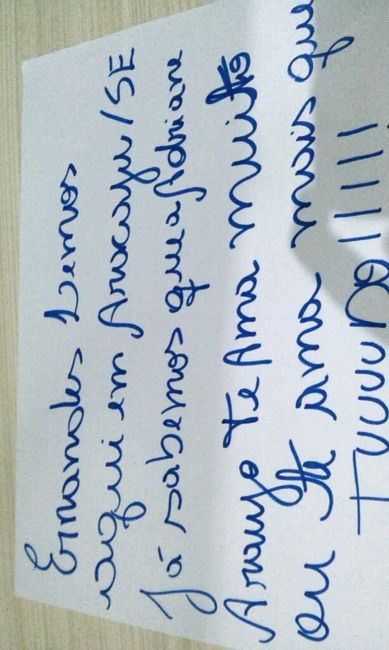 Ernandes Lemos
aqui em Aracaju/SE
Já sabemos que a Adriane
Araujo Te Ama muito
ou te ama mais que
TUUUUDO!!!!!!